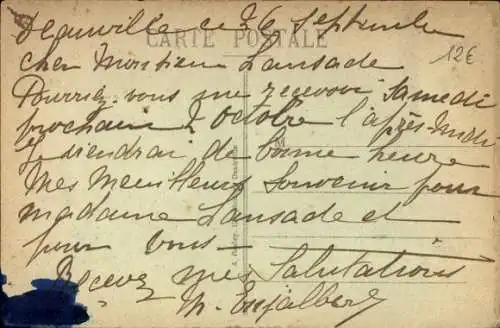 Deauville ce 26 Septembre
CARTE POSTALE
12€
Cher Monsieur Lansade
Pourriez-vous me recevoir Samedi
prochain 2 octobre l'après-midi
Je viendrai de bonne heure
Mes meilleurs Souvenir pour
madame Lansade et
pour vous —
Recevez mes Salutations
M. Enjalbert